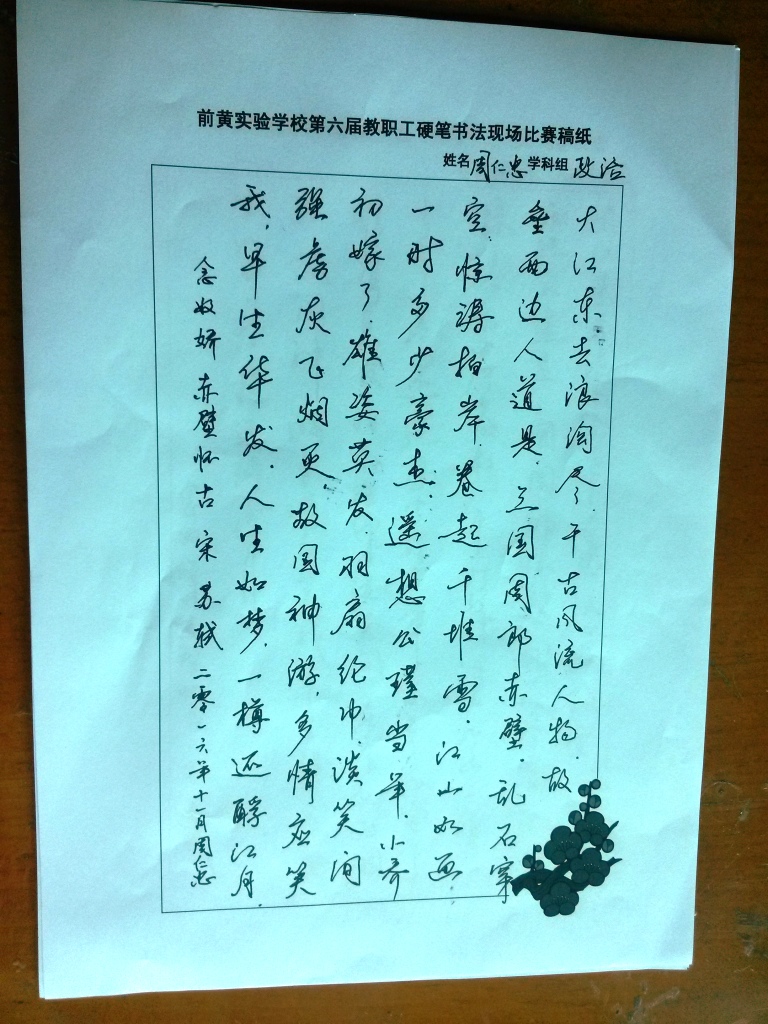 前黄实验学校第六届教职工硬笔书法现场比赛稿纸
姓名 周仁忠 学科组 政治
大江东去浪淘尽.千古风流人物.故
垒西边人道是.三国周郎赤壁.乱石穿
空.惊涛拍岸.卷起千堆雪.江山如画.
一时多少豪杰.遥想公瑾当年.小乔
初嫁了.雄姿英发.羽扇纶巾.谈笑间
强虏灰飞烟灭.故国神游.多情应笑
我.早生华发.人生如梦.一樽还酹江月.
念奴娇 赤壁怀古 宋 苏轼 二零一六年十一月周仁忠